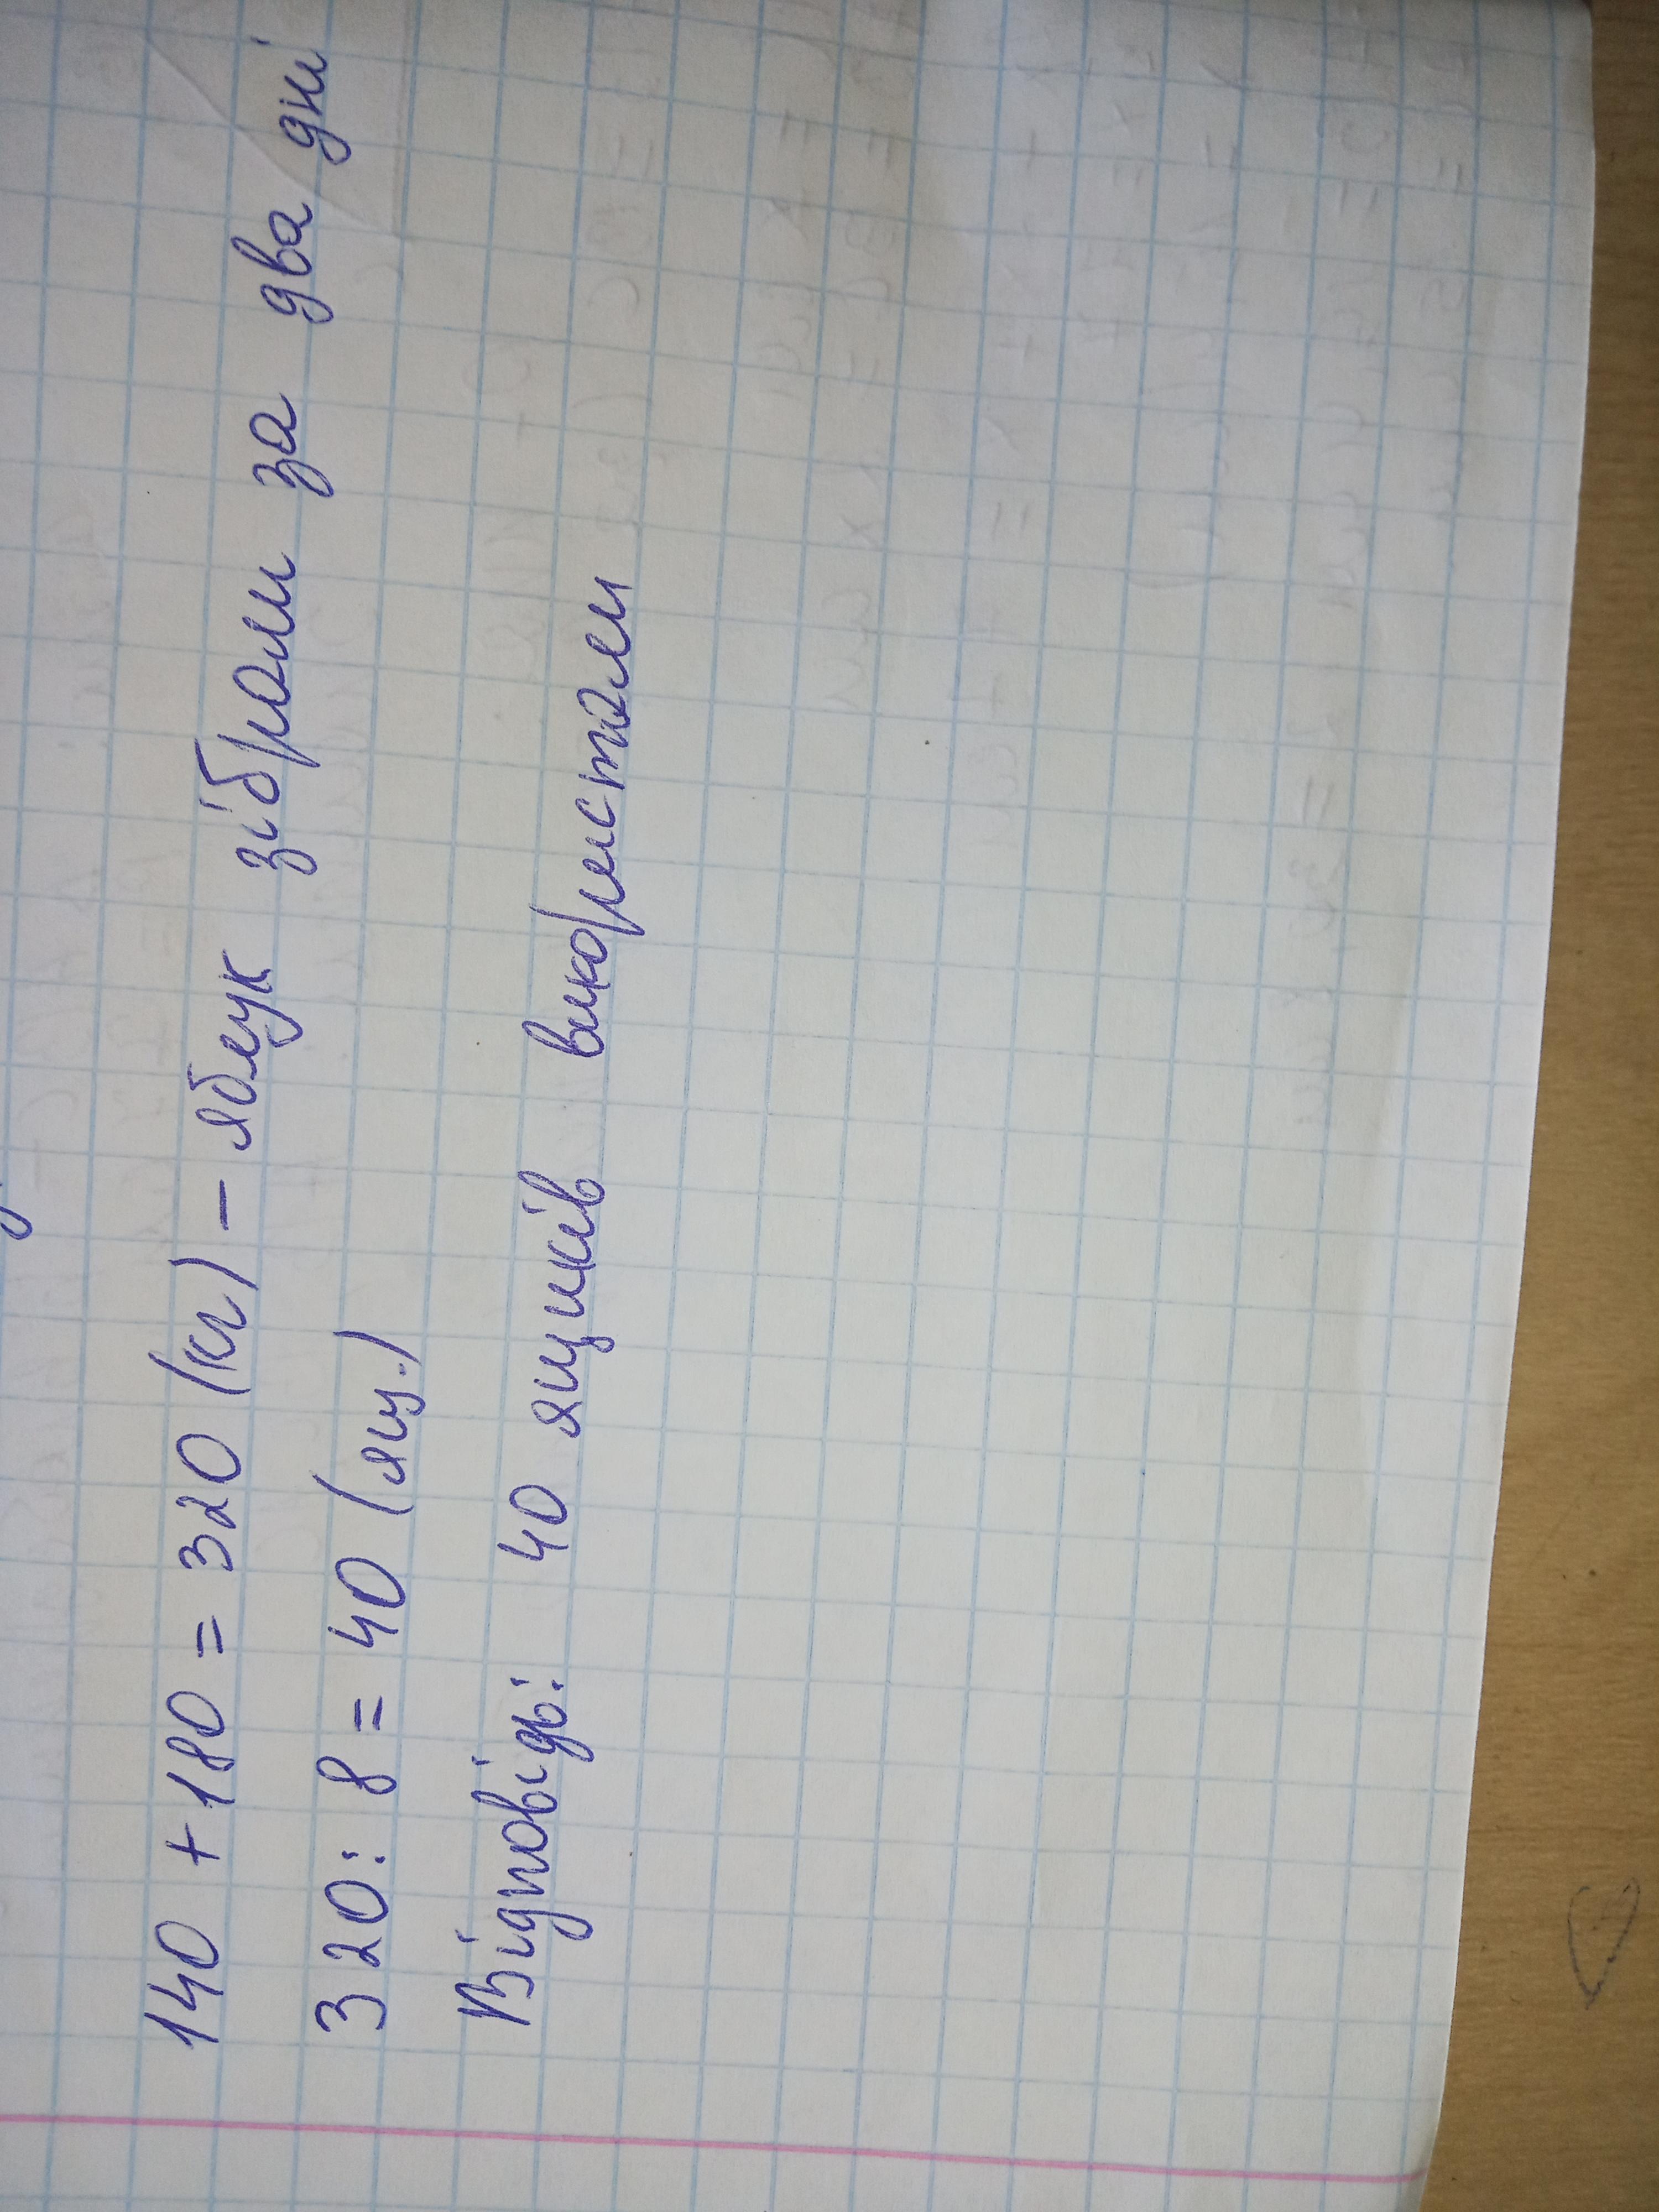 140 + 180 = 320 (кг) - яблук зібрали за два дні
320 : 8 = 40 (ящ.)
Відповідь: 40 ящиків використали